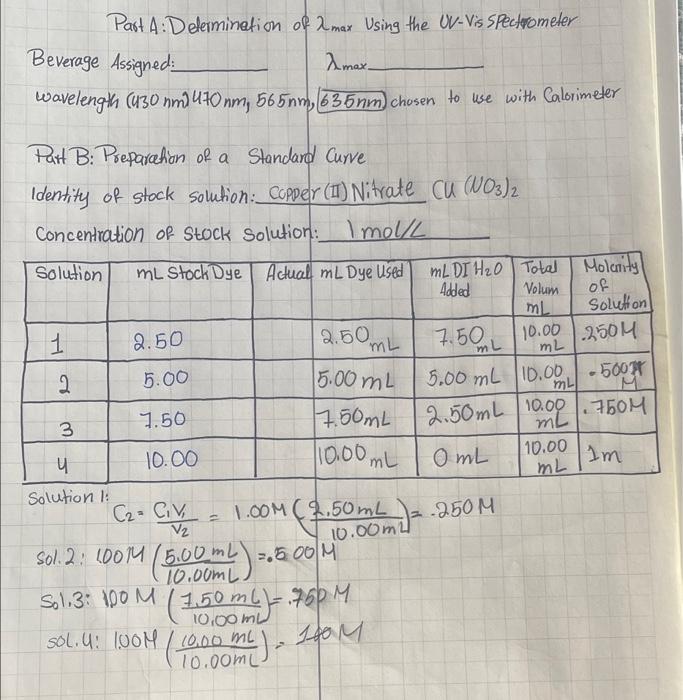 Part A: Determination of λmax Using the UV-Vis SPectrometer
Beverage Assigned:___________ λmax___________
wavelength (430 nm) 470nm, 565nm, 635nm chosen to use with Calorimeter
Part B: Preparation of a Standard Curve
Identity of stock solution: Copper (II) Nitrate Cu (NO3)2
Concentration of Stock Solution: 1 mol/L
Solution mL Stock Dye Actual mL Dye Used mL DI H2O Added Total Volum mL Molarity of Solution
1 2.50 2.50 mL 7.50 mL 10.00 mL .250M
2 5.00 5.00 mL 5.00 mL 10.00 mL .500 M
3 7.50 7.50mL 2.50mL 10.00 mL .750M
4 10.00 10.00 mL 0 mL 10.00 mL 1m
Solution 1:
C2 = C1V1/V2 = 1.00M (2.50mL/10.00mL) = .250M
Sol.2: 1.00M (5.00 mL/10.00mL) = .500M
Sol.3: 1.00 M (7.50 mL/10.00 mL) = .750 M
sol.4: 1.00M (10.00 mL/10.00mL) = 1.00 M